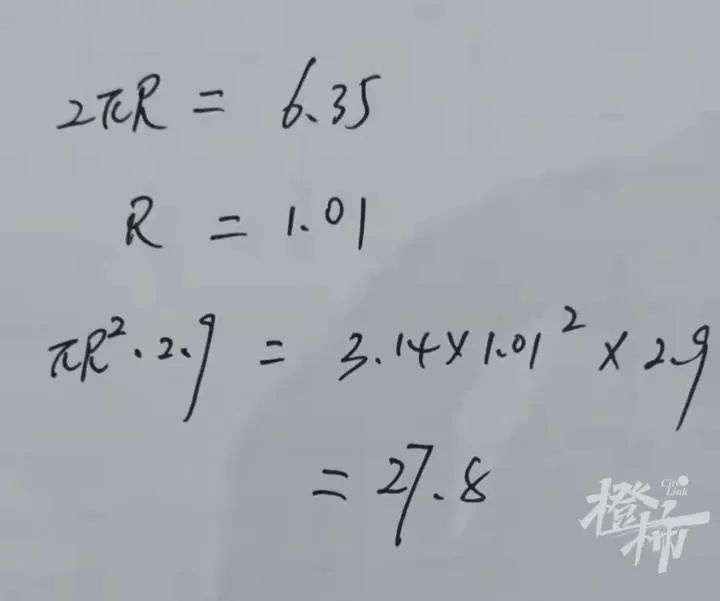 2πR = 6.35
R = 1.01
πR²·2.9 = 3.14×1.01²×2.9
= 27.8
City Link
橙柿